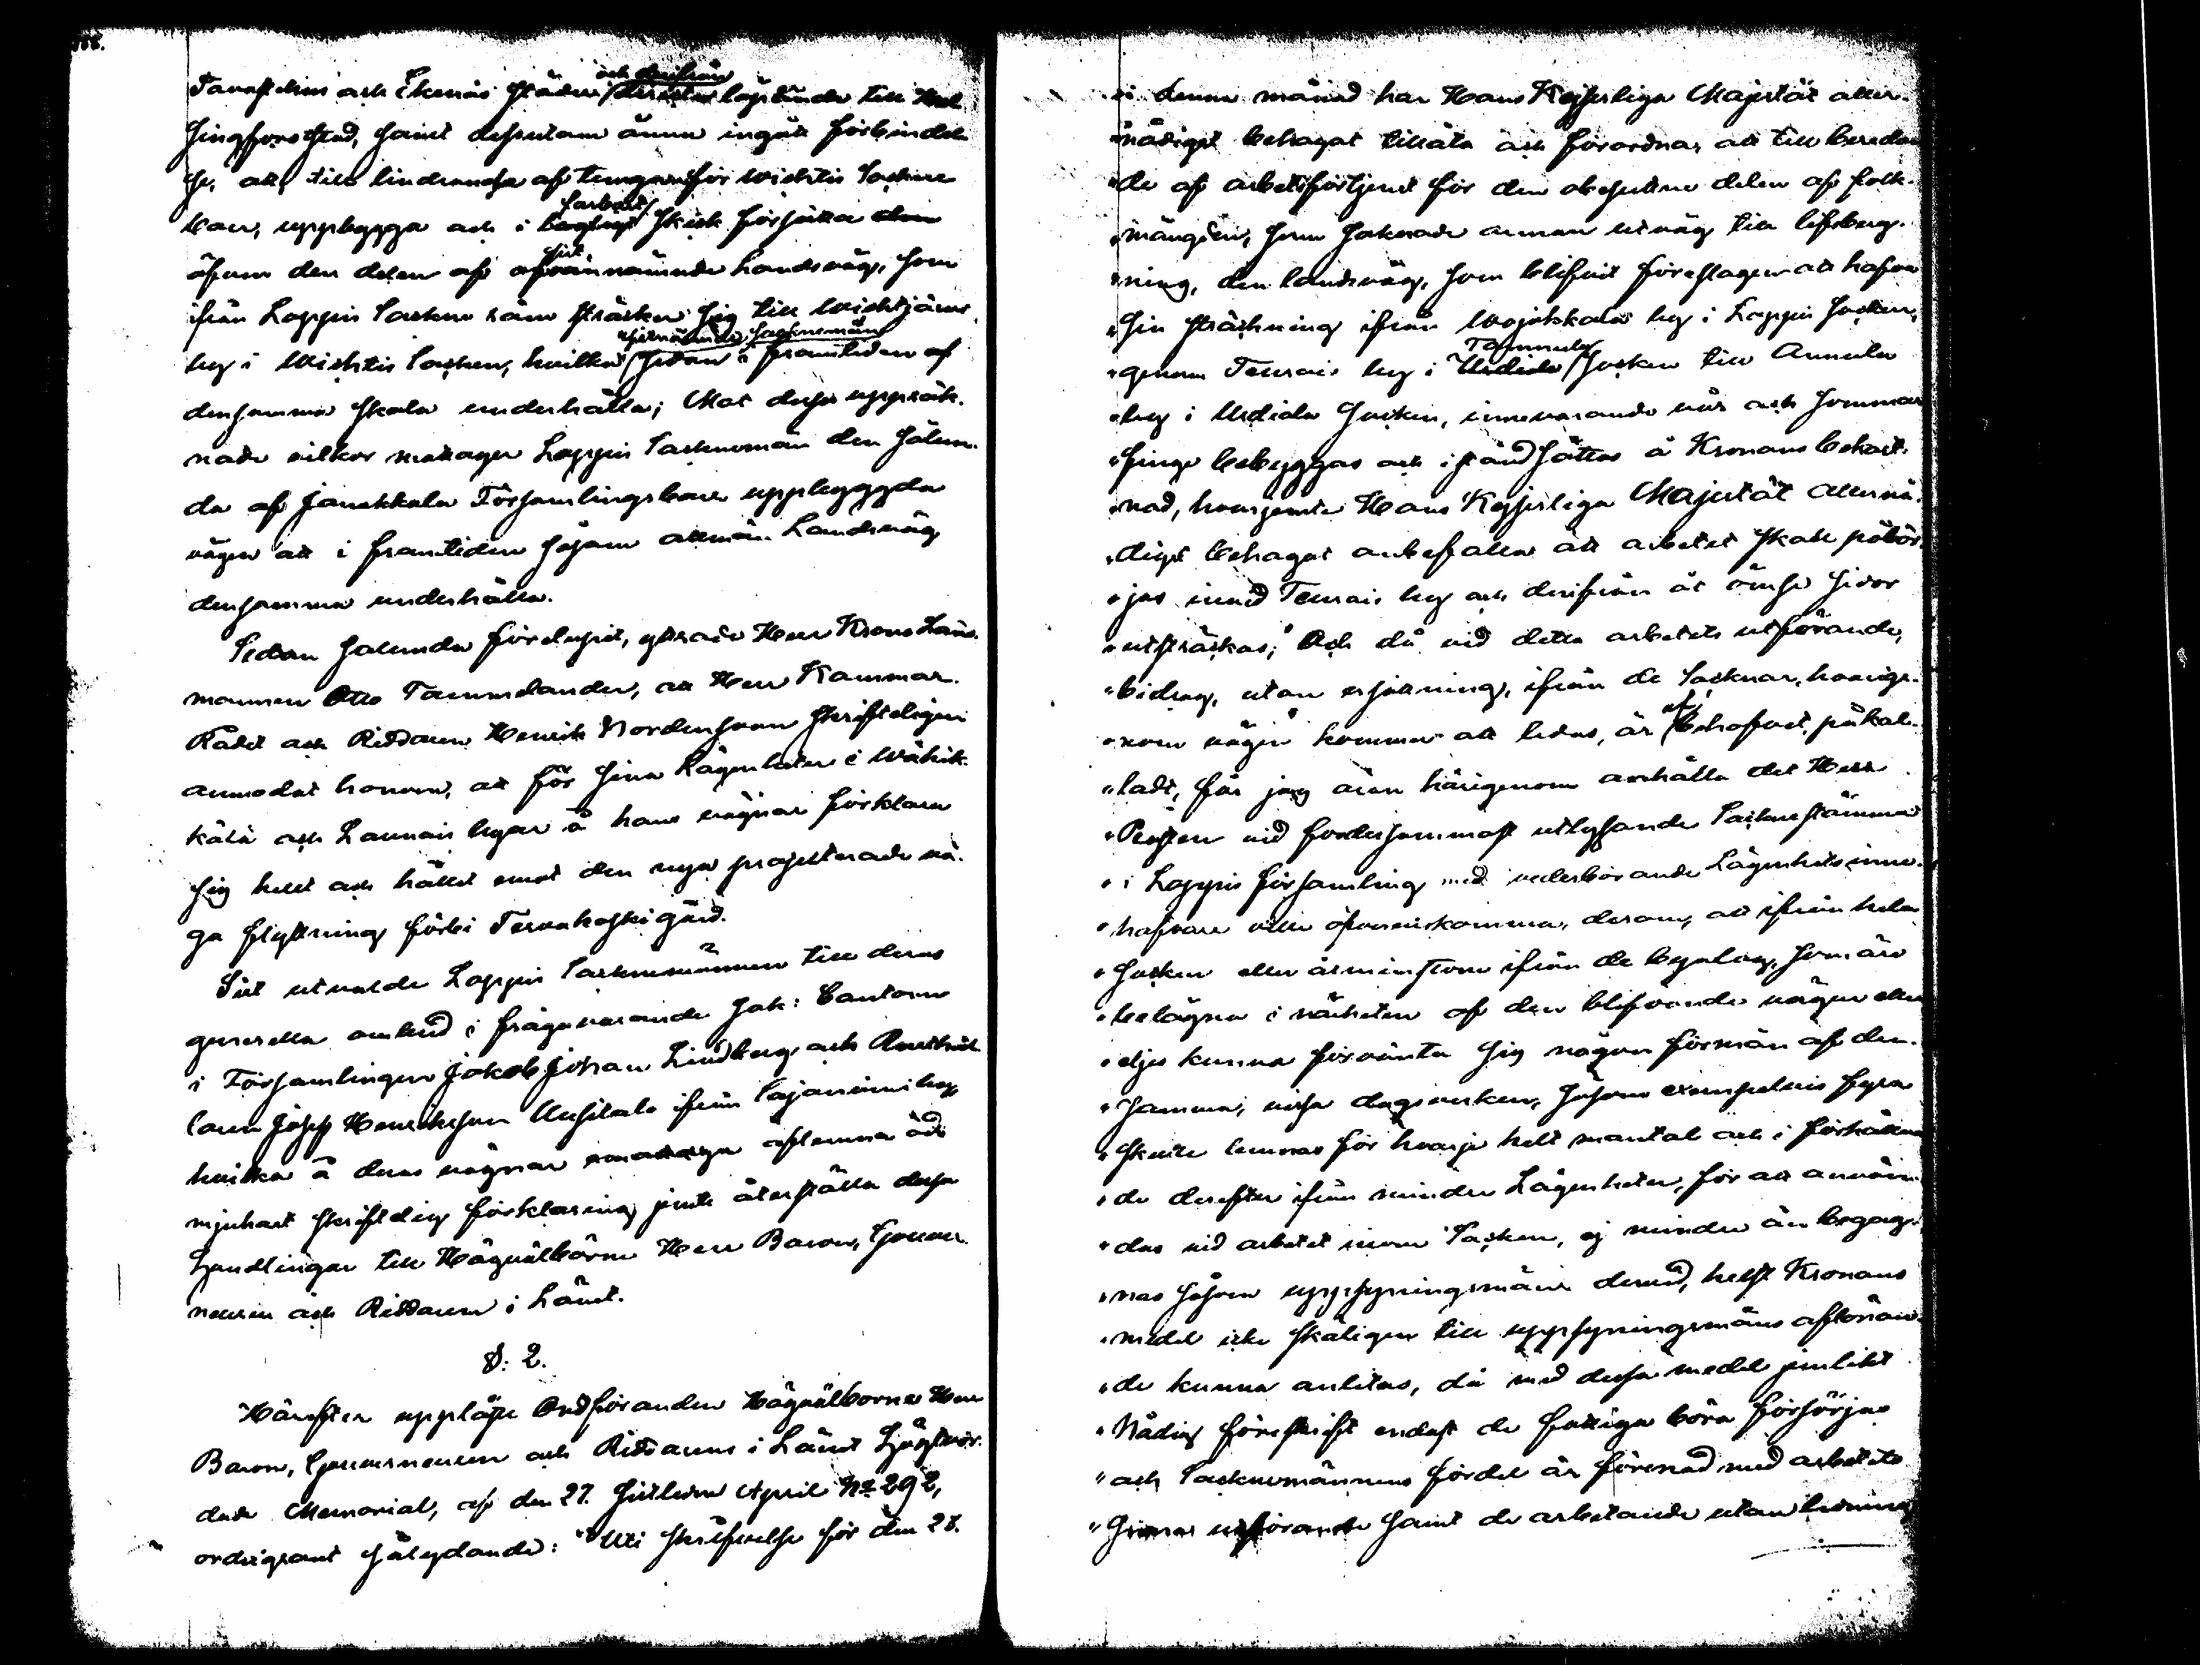 Tavastehus och Ekenäs städer och derifrån löpande till Hel
singfors stad, samt dessutom ännu ingått förbindel
se, att till lindrande af tungan för Wichtis Sockne
boer, uppbygga och i farbart skick försätta
äfven den delen af nämnde Landsväg, som
ifrån Loppis Sockne råen sträcker sig till Wichtijärvi
by i Wichtis Socken, hvilka sistnämnde Socknemän i framtiden af
densamma skola underhålla; Mot desse uppräk-
nade vilkor mottager Loppis Socknemän den sålun-
da af Janakkala Församlingsboer uppbyggda
vägen att i framtiden såsom allmän Landsväg
densamma underhålla.
Sedan salunda förelupit, yttrade Herr Krono Läns-
mannen Otto Tammelander, att Herr Kammar-
Rådet och Riddaren Henrik Nordenswan skrifteligen
anmodat honom, att för sina Lägenheter i Wähik-
kälä och Launois byar å hans vägnar förklara
sig helt och hållet emot den nya projecterade vä-
ga flyttning förbi Tervakoski gård.
Sist utvalde Loppis Socknemännen till deras
generella ombud i frågavarande sak: Cantorn
i Församlingen Jakob Johan Lindberg och Rusthål-
laren Josef Henriksson Uusitalo ifrån Sajaniemi by,
hvilka å deras vägnar aflemna öd-
mjukast skriftelig förklaring jemte återställa dessa
Handlingar till Högvälborne Herr Baron, Gouver-
neuren och Riddaren i Länet.
§: 2.
Härefter upplästes Ordföranden Högvälborne Herr
Baron, Gouverneuren och Riddarens i Länet Högtvör-
dade Memorial, af den 27. sistledne April No 292,
ordagrant sålydande: "Uti skrifvelse för den 28.
"i denna månad har Hans Kejserliga Majestät aller-
"nådigst behagat tillåta och förordna, att till beredan
"de af arbetsförtjenst för den obesuttne delen af folk-
"mängden, som saknade annan utväg till lifsberg-
"ning, den landsväg, som blifvit föreslagen att hafva
"sin sträckning ifrån Wojakkala by i Loppis Socken,
"genom Teuro by i Tammela Socken till Annula
"by i Urdiala Socken, innevarande vår och sommar
"finge bebyggas och iståndsättas å Kronans bekost-
"nad, hvarjemte Hans Kejserliga Majestät allernå-
"digst behagat anbefalla att arbetet skall påbör-
"jas invid Teuro by och derifrån åt ömse sidor
"utsträckas; Och då vid detta arbetets utförande,
"bidrag, utan ersättning, ifrån de Socknar, hvarige-
"nom vägen kommer att ledas, är af behofvet påkal-
"ladt, får jag äran härigenom anhålla det Herr
"Prosten vid fordersammast utlysande Sockne stämma
"i Loppis församling med vederbörande Lägenhets inne-
"hafvare ville öfverenskomma, derom, att ifrån hela
"Socken eller åtminstone ifrån de byalag, som äro
"belägna i närheten af den blifvande vägen eller
"eljes kunna förvänta sig någon förmån af den-
"samma, vissa dagsverken, såsom exempelvis fyra
"skulle lemnas för hvarje helt mantal och i förhållan
"de derefter ifrån mindre Lägenheter, för att använ-
"das vid arbetet inom Socken, ej mindre än begag-
"nas såsom uppsyningsmän dervid, helst Kronans
"medel icke skäligen till uppsyningsmäns aflönan-
"de kunna anlitas, då med dessa medel jemlikt
"Nådig föreskrift endast de fattiga böra försörjas
"och Socknemännens fördel är förenad med arbetets
utförande samt de arbetande utan ledning